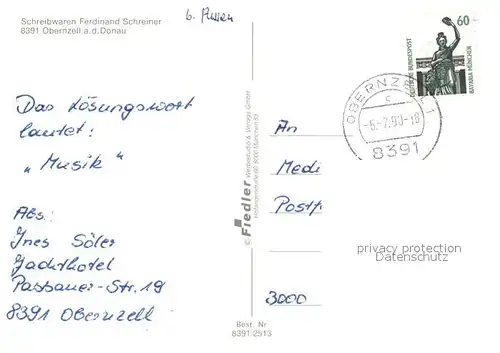 Schreibwaren Ferdinand Schreiner
8391 Obernzell a.d.Donau
b. Passau
Das Lösungswort
lautet:
„Musik"
Abs:
Ines Söler
Jachthotel
Passauer-Str. 19
8391 Obernzell
© Fiedler Werbestudio & Verlags GmbH
8000 München 83
Best. Nr
8391/2513
60
DEUTSCHE BUNDESPOST
BAVARIA MÜNCHEN
OBERNZELL 1
c
-6.-7.90-18
8391
An
Medi
Postf
3000
privacy protection
Datenschutz